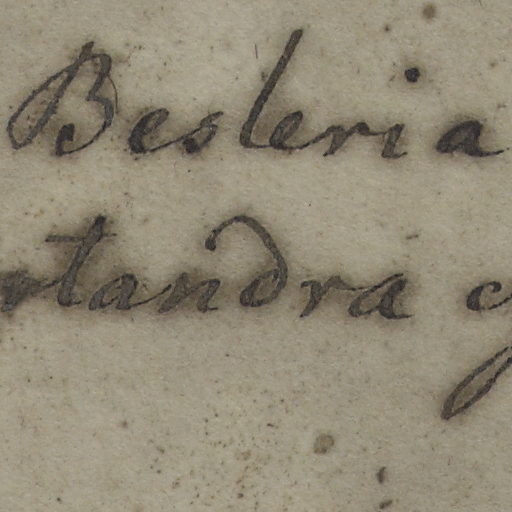 Besleria
rtandra